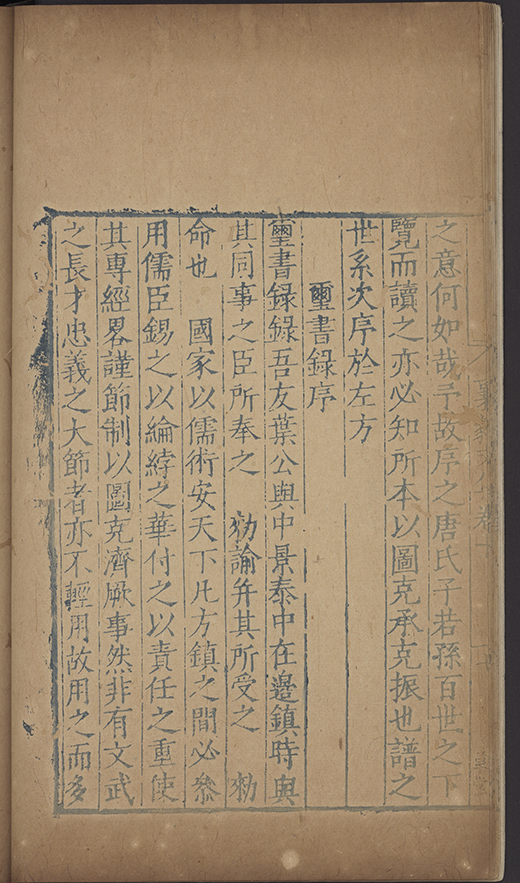 之意何如哉予故序之唐氏子若孫百世之下
覽而讀之亦必知所本以圖克承克振也譜之
世系次序於左方
璽書録序
璽書録録吾友葉公與中景泰中在邉鎮時與
其同事之臣所奉之 勑諭并其所受之 勑
命也 國家以儒術安天下凡方鎮之間必叅
用儒臣錫之以綸綍之華付之以責任之重使
其專經畧謹節制以圖克濟厥事然非有文武
之長才忠義之大節者亦不輕用故用之而多